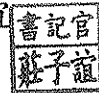 書記官
莊子誼